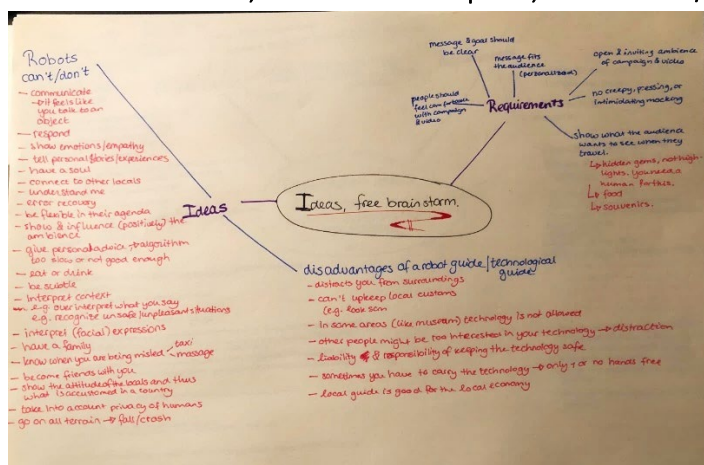 Robots
can't/don't
- communicate
→ it feels like
you talk to an
object
- respond
- show emotions/empathy
- tell personal stories/experiences
- have a soul
- connect to other locals
- understand me
- error recovery
- be flexible in their agenda
- show & influence (positively) the
ambience
- give personal advice → algorithm
too slow or not good enough
- eat or drink
- be subtle
- interpret context
e.g. over interpret what you say
e.g. recognise unsafe/unpleasant situations
- interpret (facial) expressions
- have a family
- know when you are being misled
taxi
massage
- become friends with you
- show the attitude of the locals and thus
what is accustomed in a country
- take into account privacy of humans
- go on all terrain → fall/crash
Ideas
Ideas, free brainstorm.
Requirements
message & goal should
be clear
message fits
the audience
(personalised)
open & inviting ambience
of campaign & video
people should
feel comfortable
with campaign
& video
no creepy, pressing, or
intimidating mocking
show what the audience
wants to see when they
travel.
↳ hidden gems, not high-
lights. you need a
human for this.
↳ food
↳ souvenirs.
disadvantages of a robot guide/technological
guide
- distracts you from surroundings
- can't upkeep local customs
(e.g. look
- In some areas (like museum) technology is not allowed
- other people might be too interested in your technology → distraction
- liability & responsibility of keeping the technology safe
- sometimes you have to carry the technology → only 1 or no hands free
- local guide is good for the local economy